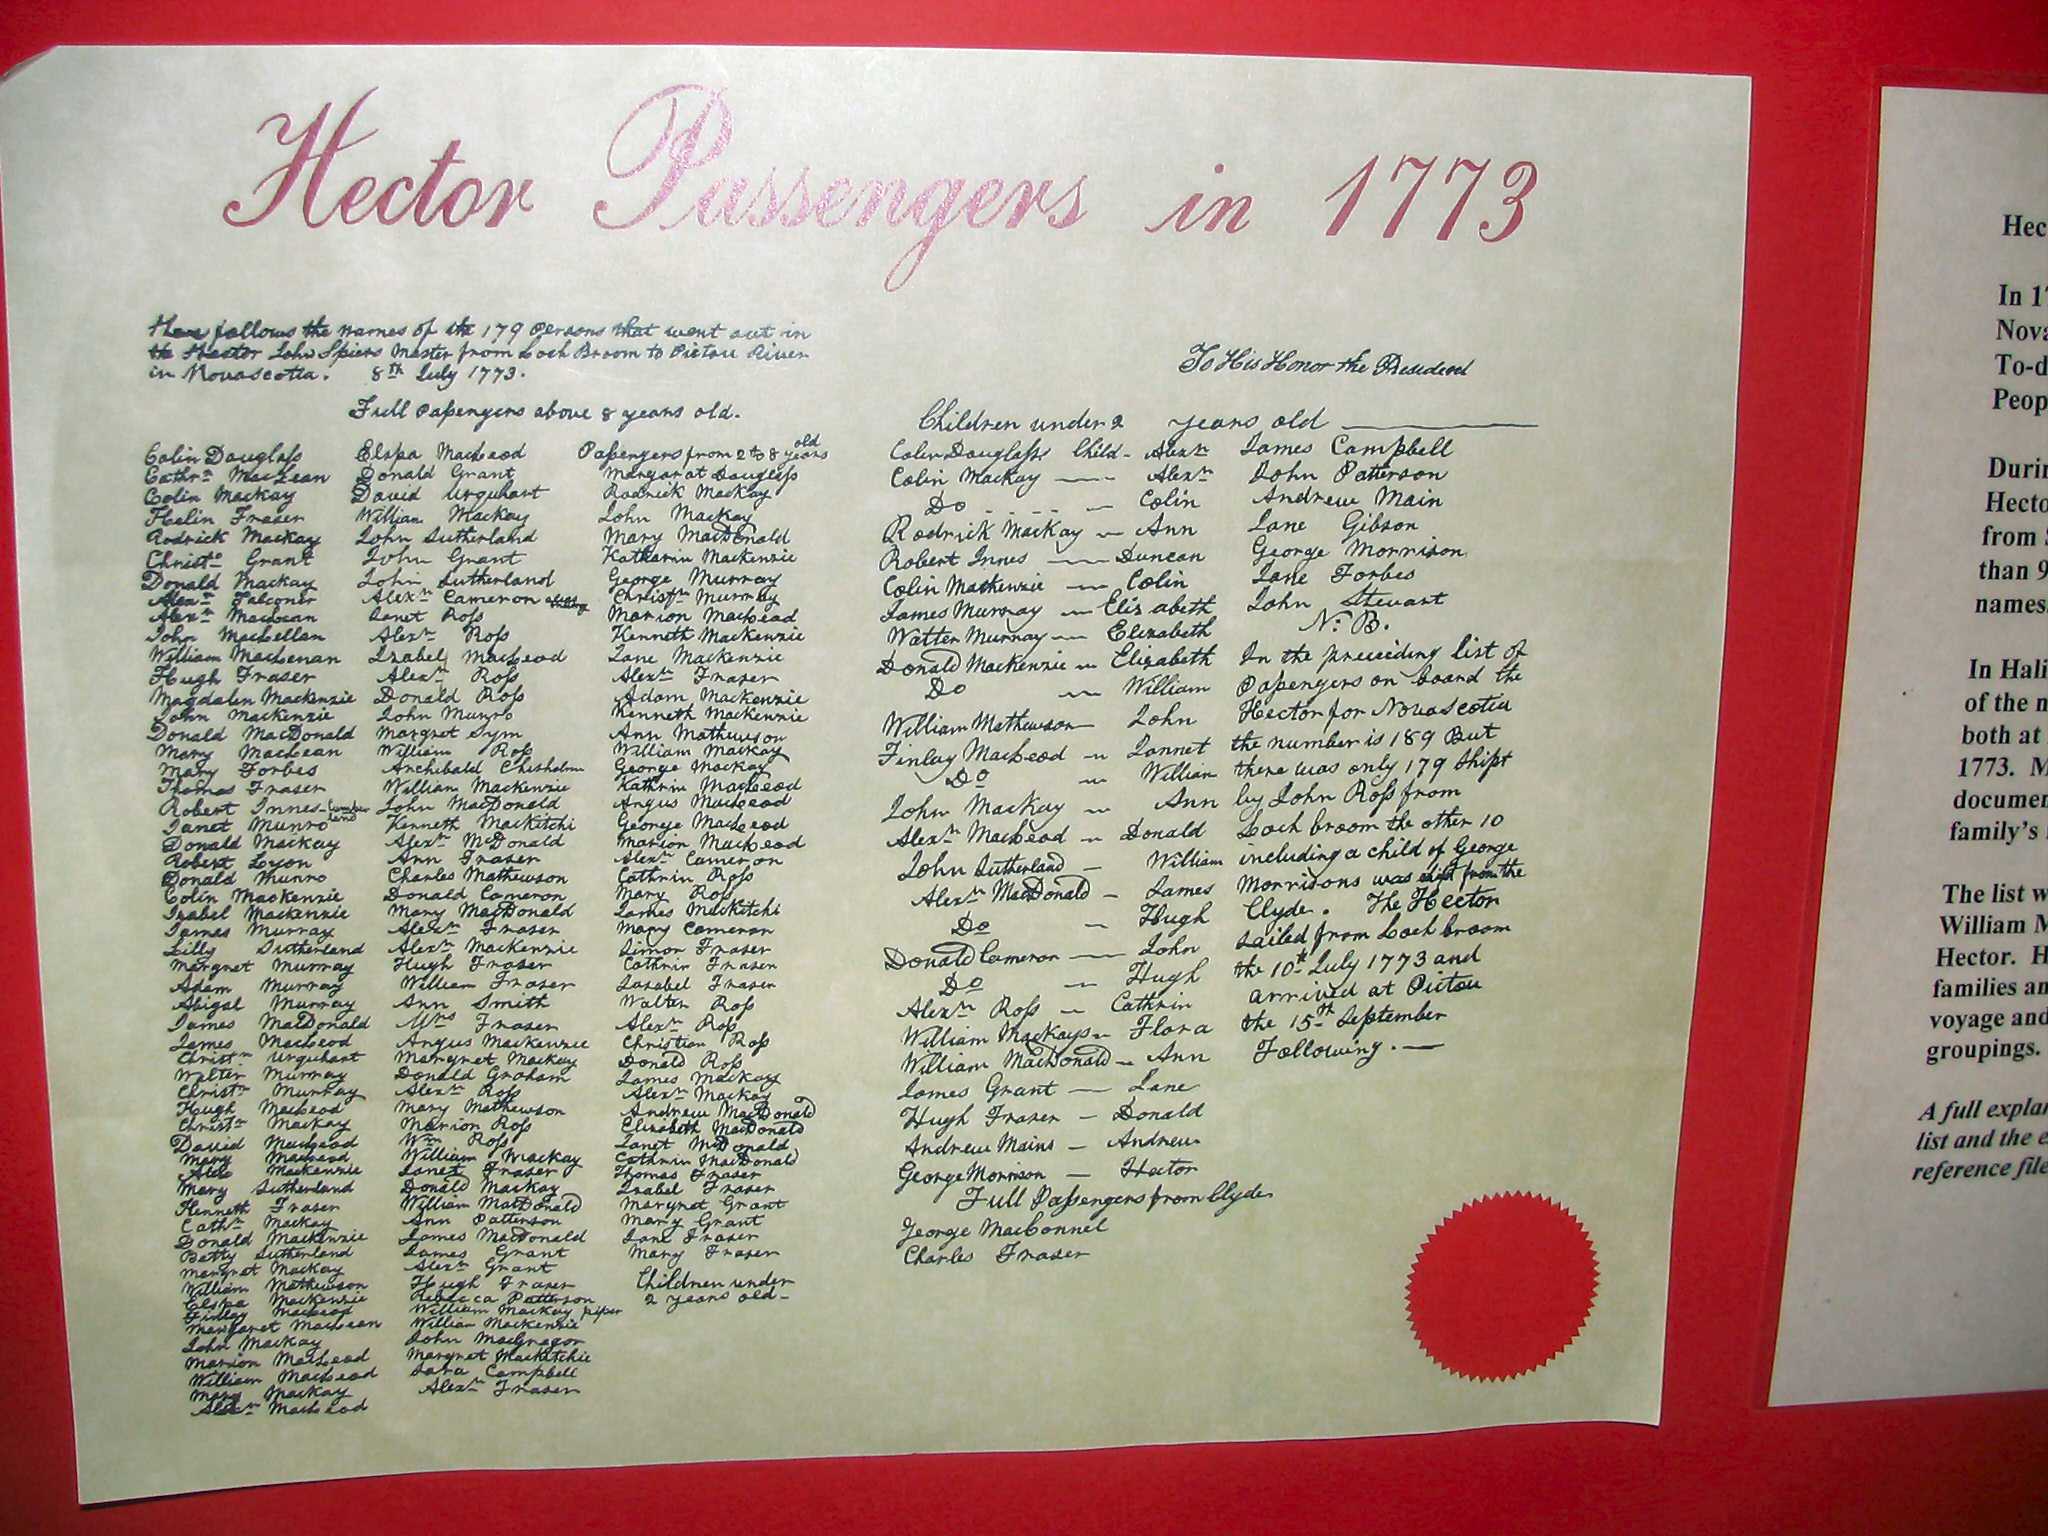 Hector Passengers in 1773
Here follows the names of the 179 Persons that went out in
the Hector John Spiers Master from Loch Broom to Pictou River
in Novascotia. 8th July 1773.
Full Paſsengers above 8 years old.
Colin Douglaſs
Cathrn MacLean
Colin Mackay
Helin Fraser
Rodrick Mackay
Christn Grant
Donald Mackay
Alexr Falconer
Alexr
John MacLellan
William MacLenan
Hugh Fraser
Magdalen MacKenzie
John MacKenzie
Donald MacDonald
Mary MacLean
Mary Forbes
Thomas Fraser
Robert Innes
Janet Munro
Donald Mackay
Robert Lyon
Donald Munro
Colin MacKenzie
Izabel MacKenzie
James Murray
Lilly Sutherland
Margret Murray
Adam Murray
Abigal Murray
James MacDonald
James MacLeod
Christn Urquhart
Walter Murray
Christn Murray
Hugh MacLeod
Christn Mackay
David MacLeod
Mary MacLeod
MacKenzie
Mary Sutherland
Kenneth Fraser
Cathn Mackay
Donald MacKenzie
Betty Sutherland
Margret Mackay
William Mathewson
Elspa MacKenzie
Finlay MacLeod
Margaret MacLean
John Mackay
Marion MacLeod
William MacLeod
Mary Mackay
Alexr MacLeod
Elspa MacLeod
Donald Grant
David Urquhart
William Mackay
John Sutherland
John Grant
John Sutherland
Alexr Cameron
Janet Roſs
Alexr Roſs
Izabel MacLeod
Alexr Roſs
Donald Roſs
John Munro
Margret Sym
William Roſs
Archibald Chisholm
William MacKenzie
John MacDonald
Kenneth MacKitchi
Alexr McDonald
Ann Fraser
Charles Mathewson
Donald Cameron
Mary MacDonald
Alexr Fraser
Alexr MacKenzie
Hugh Fraser
William Fraser
Ann Smith
Mrs Fraser
Angus MacKenzie
Margret Mackay
Donald Graham
Alexr Roſs
Mary Mathewson
Marion Roſs
Wm Roſs
William Mackay
Janet Fraser
Donald Mackay
William MacDonald
Ann Patterson
James McDonald
James Grant
Alexr Grant
Hugh Fraser
Rebecca Patterson
William Mackay piper
William MacKenzie
John MacGregor
Margret MacKitchie
Sara Campbell
Alexr Fraser
Paſsengers from 2 to 8 years old
Margarat Douglaſs
Rodrick Mackay
John Mackay
Mary MacDonald
Katharin MacKenzie
George Murray
Christn Murray
Marion MacLeod
Kenneth MacKenzie
Jane MacKenzie
Alexr Fraser
Adam MacKenzie
Kenneth MacKenzie
Ann Mathewson
William Mackay
George Mackay
Kathrin MacLeod
Angus MacLeod
George MacLeod
Marion MacLeod
Alexr Cameron
Cathrin Roſs
Mary Roſs
James MacKitchi
Mary Cameron
Simon Fraser
Cathrin Fraser
Izabel Fraser
Walter Roſs
Alexr Roſs
Christian Roſs
Donald Roſs
James Mackay
Alexr Mackay
Andrew MacDonald
Elizabeth MacDonald
Janet McDonald
Cathrin MacDonald
Thomas Fraser
Izabel Fraser
Margret Grant
Mary Grant
Jane Fraser
Mary Fraser
Children under
2 years old -
To His Honor the President
Children under 2 years old
Colin Douglaſs Child - Alexr
Colin Mackay — Alexr
Do - - - - Colin
Rodrick MacKay - Ann
Robert Innes — Duncan
Colin MacKenzie — Colin
James Murray - Elizabeth
Walter Murray - Elizabeth
Donald MacKenzie - Elizabeth
Do - William
William Mathewson - John
Finlay MacLeod - Jannet
Do - William
John MacKay - Ann
Alexr MacLeod - Donald
John Sutherland - William
Alexr MacDonald - James
Do - Hugh
Donald Cameron — John
Do - Hugh
Alexr Roſs - Cathrin
William Mackays - Flora
William MacDonald - Ann
James Grant — Jane
Hugh Fraser - Donald
Andrew Mains - Andrew
George Morrison — Hector
Full Paſsengers from Clyde
George MacConnel
Charles Fraser
James Campbell
John Patterson
Andrew Main
Jane Gibson
George Morrison
Jane Forbes
John Stewart
N. B.
In the preceeding list of
Paſsengers on board the
Hector for Novascotia
the number is 189 But
there was only 179 Shipt
by John Roſs from
Loch broom the other 10
including a child of George
Morrisons was from the
Clyde. The Hector
sailed from Loch broom
the 10th July 1773 and
arrived at Pictou
the 15th September
Following. —
Hec
In 17
Nova
To-d
Peop
Durin
Hecto
from S
than 9
names.
In Hali
of the n
both at
1773. M
documen
family's
The list w
William M
Hector. H
families an
voyage and
groupings.
A full explan
list and the e
reference file